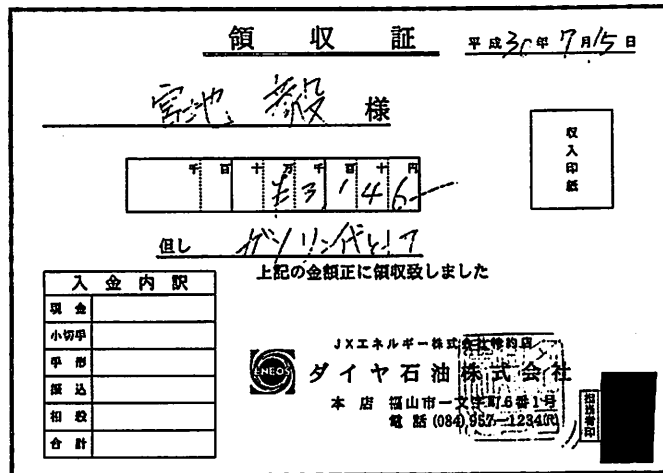 領収証
平成30年7月15日
宮地 毅 様
千百十万千百十円
¥3,146-
但し ガソリン代として
上記の金額正に領収致しました
収入印紙
入金内訳
現金
小切手
手形
振込
相殺
合計
JXエネルギー株式会社特約店
ENEOS
ダイヤ石油株式会社
本店 福山市一文字町6番1号
電話(084)957-1234代
担当者印